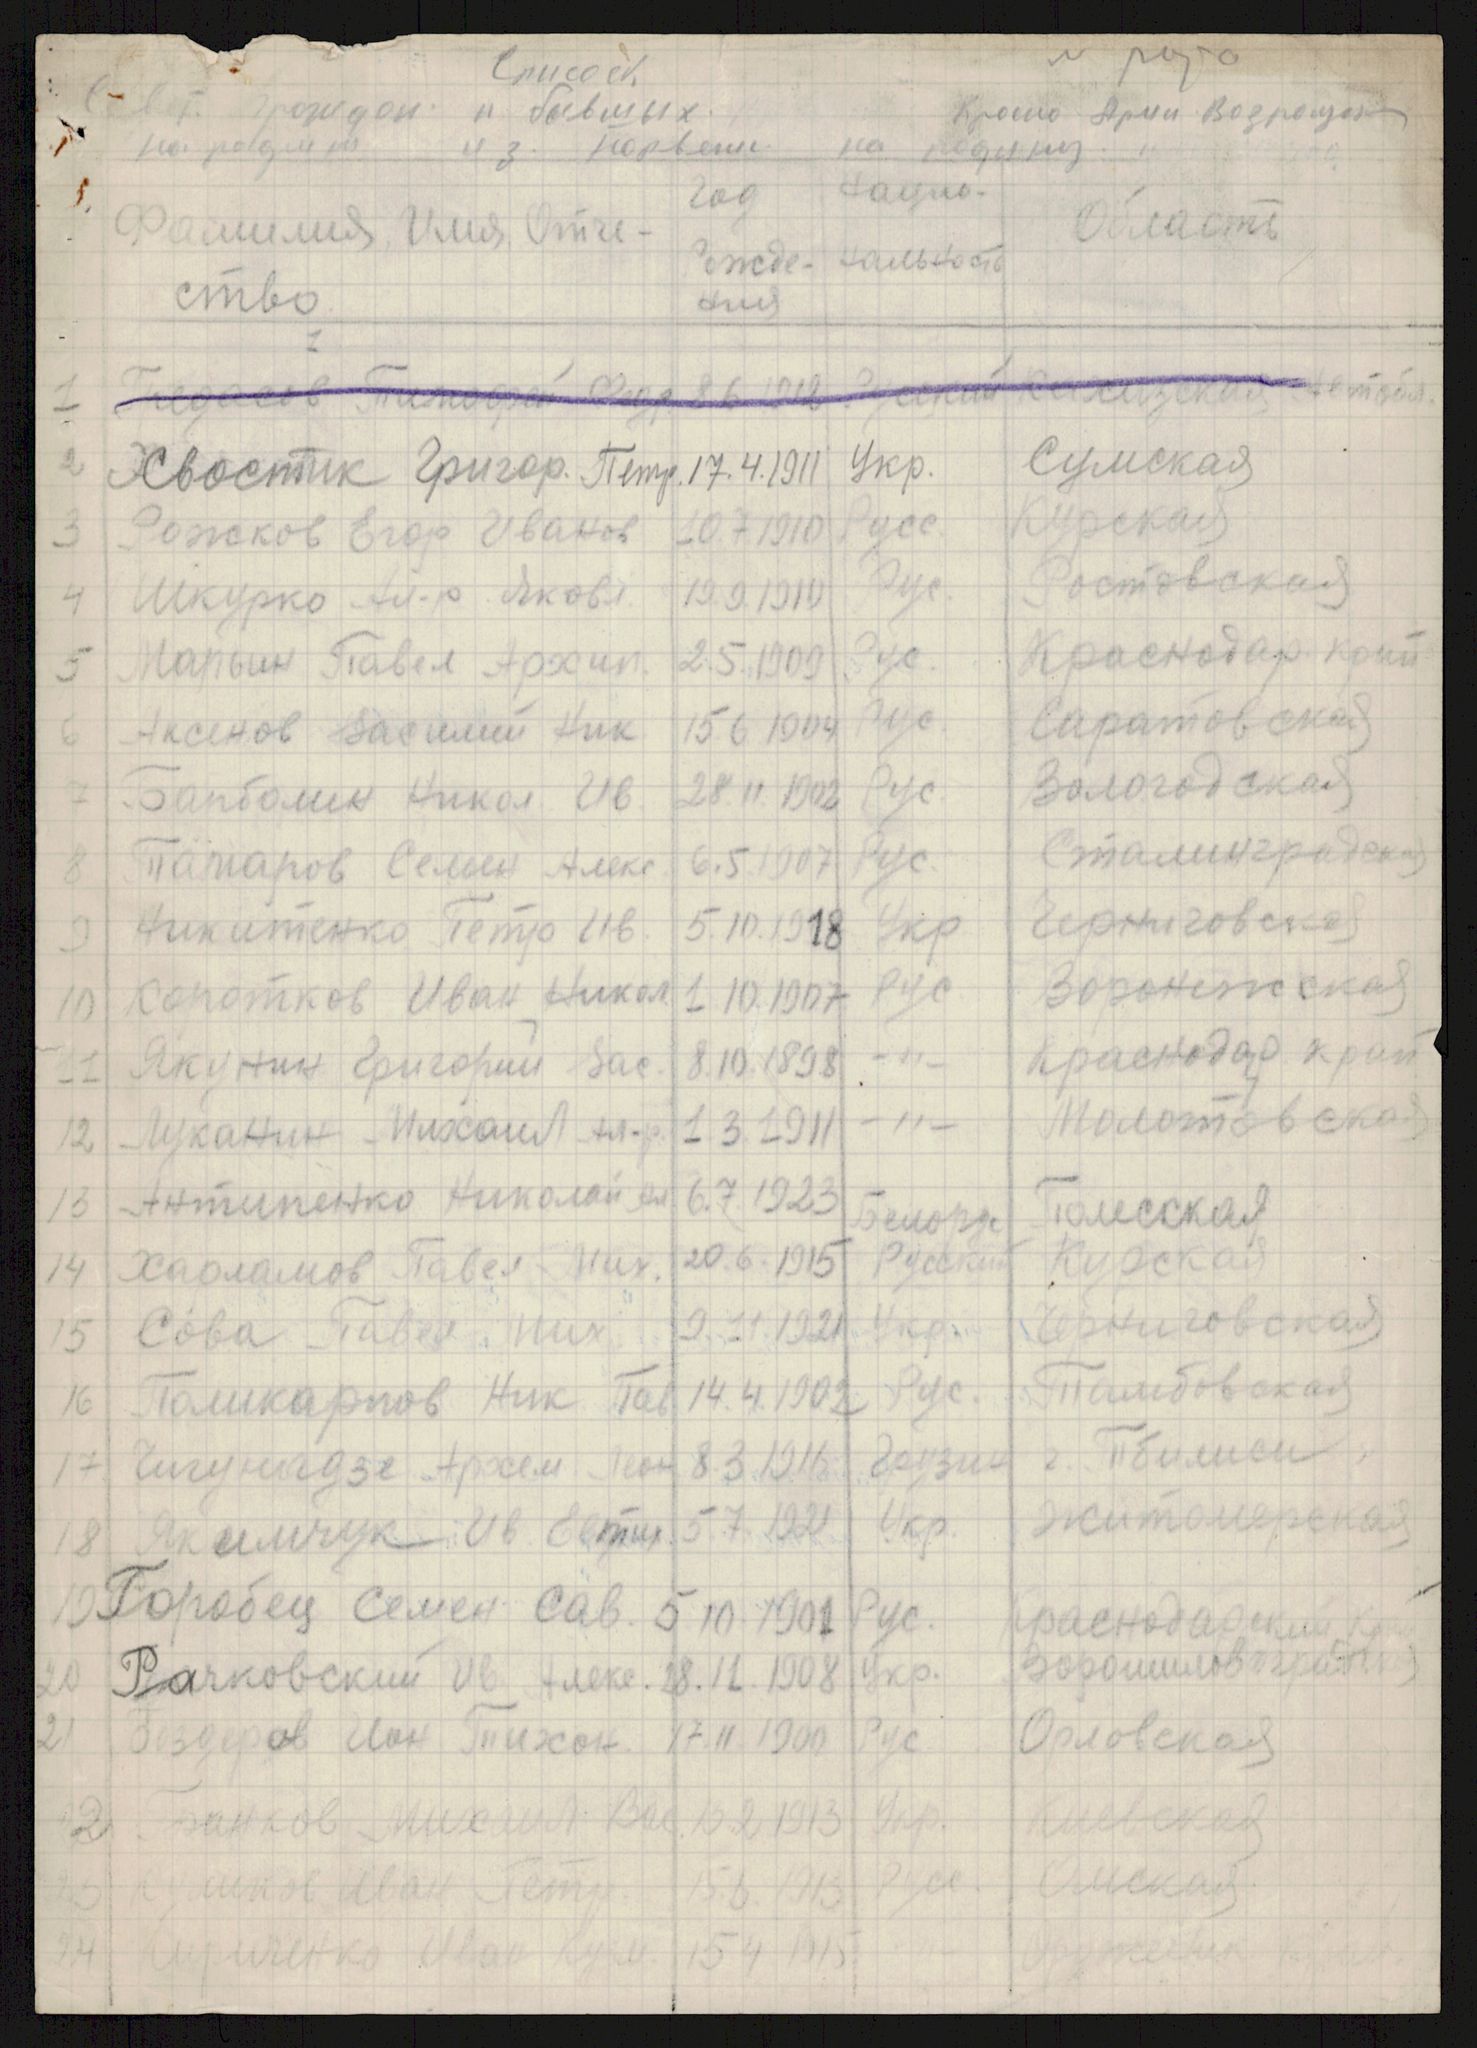 Список
рота
граждан и бывших Красно Арми Возращ
из Норвеги на родину
Фамилия, Имя, Отче-
ство
Год
Рожде-
ния
Нацио-
нальность
Область
1 8.6.1912 Русский
2 Хвостик Григор. Петр. 17.4.1911 Укр. Сумская
3 Рожков Егор Иванов 10.7.1910 Русс. Курская
4 Шкурко Ал-р Яковл. 19.9.1910 Рус. Ростовская
5 Марьин Павел Архип. 2.5.1909 Рус. Краснодар. край
6 Аксенов Василий Ник 15.6.1904 Рус. Саратовская
7 Никол Ив. 28.11.1902 Рус. Вологодская
8 Татаров Семен Алекс 6.5.1907 Рус. Сталинградская
9 Никитенко Петр Ив. 5.10.1918 Укр Черниговская
10 Коротков Иван Никол 1.10.1907 Рус Воронежская
11 Якунин Григорий Вас. 8.10.1898 -"- Краснодар край
12 Луканин Михаил Ал-р. 1.3.1911 -"- Молотовская
13 Антипенко Николай Ал. 6.7.1923 Белорус Полесская
14 Харламов Павел Мих. 20.6.1915 Русский Курская
15 Сова Павел Мих. 9.11.1921 Укр. Черниговская
16 Поликарпов Ник Пав 14.4.1902 Рус. Тамбовская
17 Леон 8.3.1916 Грузин г. Тбилиси
18 Якимчук Ив. 5.7.1921 Укр. Житомерская
19 Горобец Семен Сав. 5.10.1901 Рус. Краснодарский край
20 Рачковский Ив Алекс. 28.11.1908 Укр. Ворошиловградская
21 Тихон. 17.11.1900 Рус Орловская
22 Банков Михаил Вас. 1913 Укр. Киевская
23 Куликов Иван Петр. 15.6.1913 Русс. Омская
24 Кириченко Иван Кузм. 15.4.1915